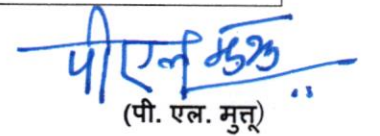 पी एल मुत्तू
(पी. एल. मुत्तू)